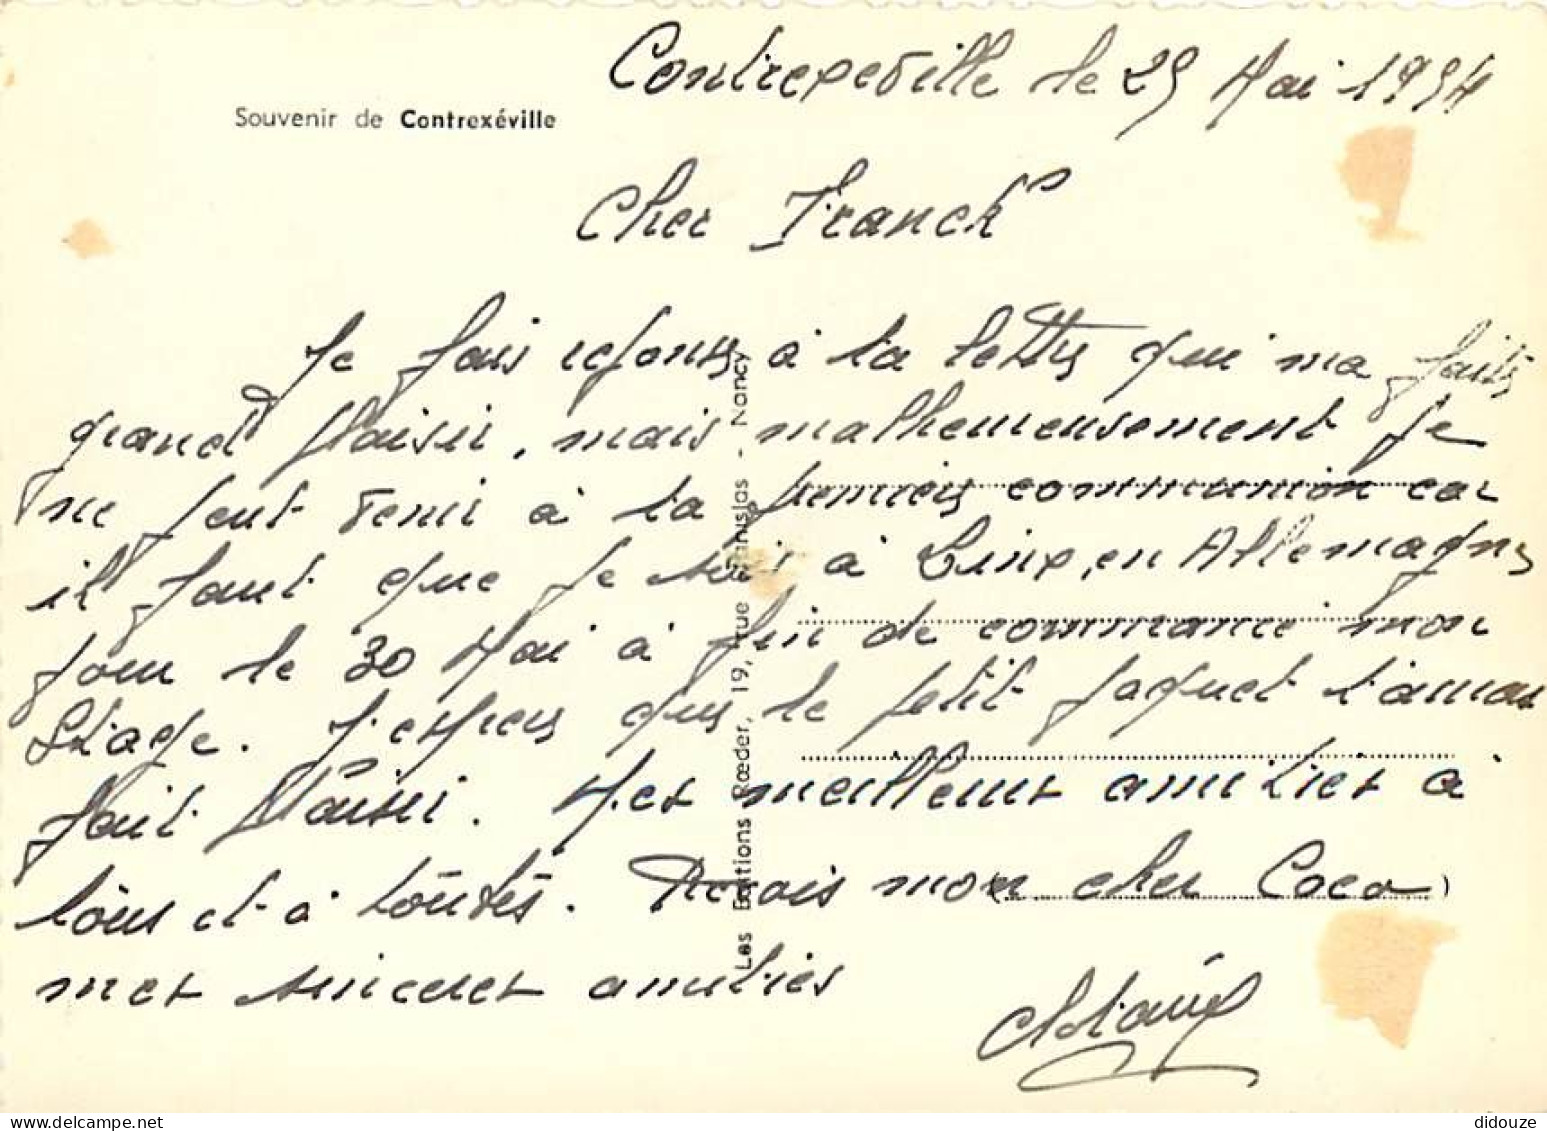 Contrexeville le 29 Mai 1954
Souvenir de Contrexéville
Cher Franck
Je fais reponse à la lettre qui ma faits
grand Plaisir, mais malheureusement je
ne peut venir à la premiers communion car
il faut que je soi à en Allemagne
pour le 30 Mai à fin de commancé mon
Stage. J'espere que le petit paquet t'auras
fait Plaisir. Mes meilleurs amitiés à
tous et à toutes. Recois mon cher Coco
mes sinceres amitiés
Les Editions Rœder, 19, rue Stanislas - Nancy
didouze